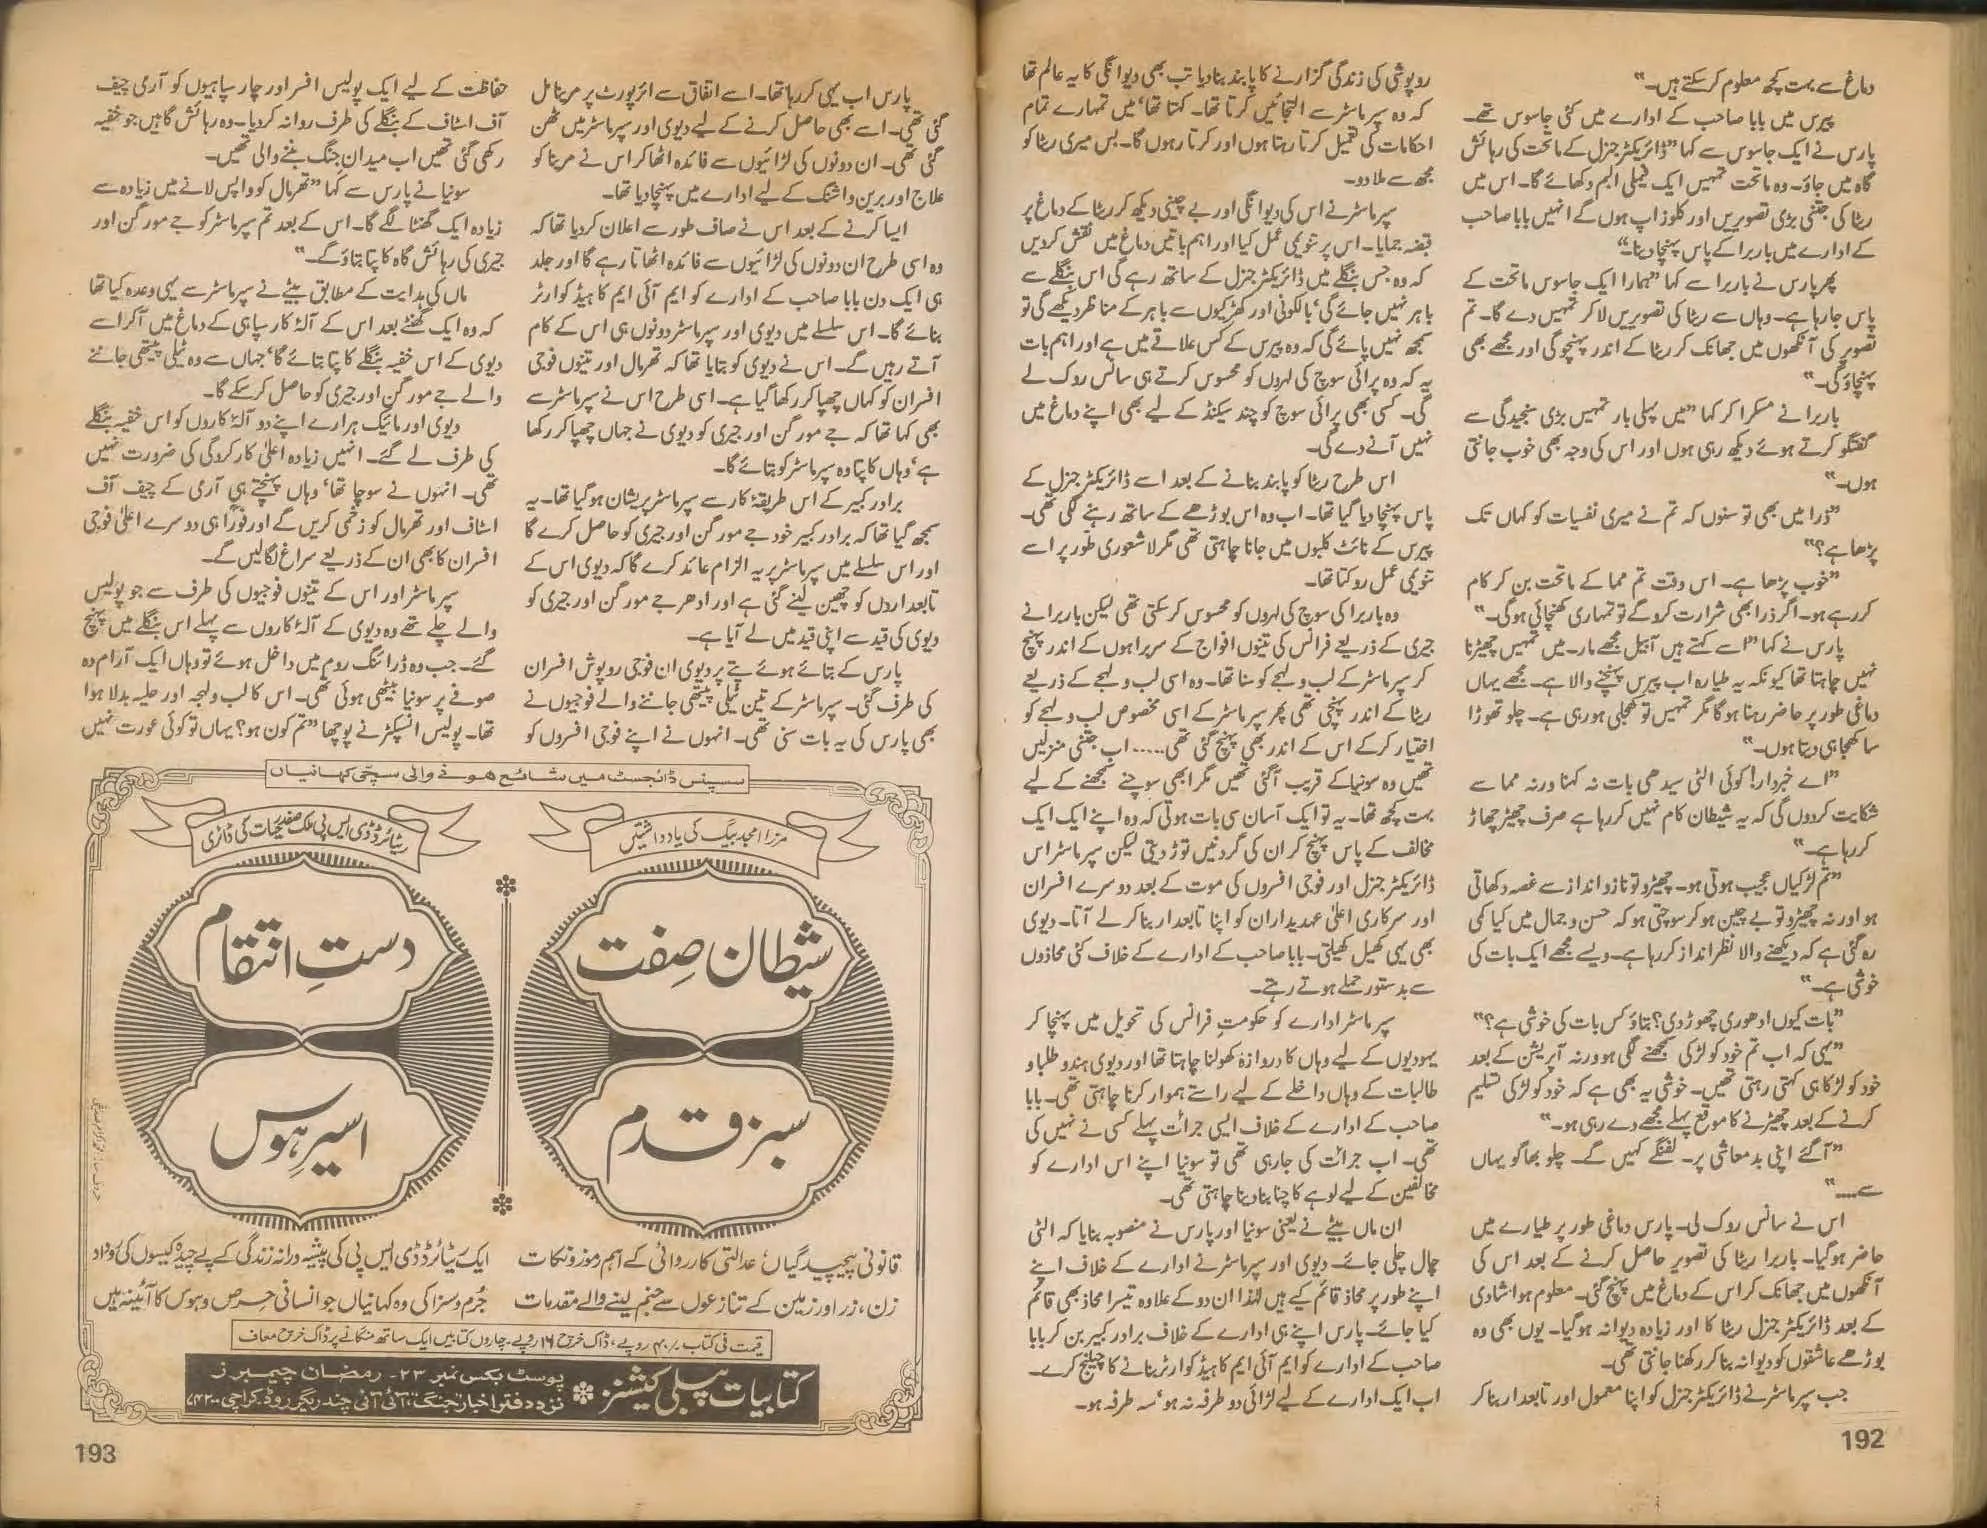 دماغ سے بہت کچھ معلوم کر سکتے ہیں۔"
پیرس میں بابا صاحب کے ادارے میں کئی جاسوس تھے۔
پارس نے ایک جاسوس سے کہا "ڈائریکٹر جنرل کے ماتحت کی رہائش
گاہ میں جاؤ۔ وہ ماتحت تمہیں ایک فیملی البم دکھائے گا۔ اس میں
ریٹا کی جتنی بڑی تصویریں اور کلوز اپ ہوں گے انہیں بابا صاحب
کے ادارے میں باربرا کے پاس پہنچا دینا۔"
پھر پارس نے باربرا سے کہا "ہمارا ایک جاسوس ماتحت کے
پاس جا رہا ہے۔ وہاں سے ریٹا کی تصویریں لا کر تمہیں دے گا۔ تم
تصویر کی آنکھوں میں جھانک کر ریٹا کے اندر پہنچو گی اور مجھے بھی
پہنچاؤ گی۔"
باربرا نے مسکرا کر کہا "میں پہلی بار تمہیں بڑی سنجیدگی سے
گفتگو کرتے ہوئے دیکھ رہی ہوں اور اس کی وجہ بھی خوب جانتی
ہوں۔"
"ذرا میں بھی تو سنوں کہ تم نے میری نفسیات کو کہاں تک
پڑھا ہے؟"
"خوب پڑھا ہے۔ اس وقت تم مما کے ماتحت بن کر کام
کر رہے ہو۔ اگر ذرا بھی شرارت کرو گے تو تمہاری کھنچائی ہوگی۔"
پارس نے کہا "اسے کہتے ہیں آ بیل مجھے مار۔ میں تمہیں چھیڑنا
نہیں چاہتا تھا کیونکہ یہ طیارہ اب پیرس پہنچنے والا ہے۔ مجھے یہاں
دماغی طور پر حاضر رہنا ہو گا مگر تمہیں تو کھجلی ہو رہی ہے۔ چلو تھوڑا
سا کھجا ہی دیتا ہوں۔"
"اے خبردار! کوئی الٹی سیدھی بات نہ کہنا ورنہ مما سے
شکایت کر دوں گی کہ یہ شیطان کام نہیں کر رہا ہے صرف چھیڑ چھاڑ
کر رہا ہے۔"
"تم لڑکیاں عجیب ہوتی ہو۔ چھیڑو تو ناز و انداز سے غصہ دکھاتی
ہو اور نہ چھیڑو تو بے چین ہو کر سوچتی ہو کہ حسن و جمال میں کیا کمی
رہ گئی ہے کہ دیکھنے والا نظر انداز کر رہا ہے۔ ویسے مجھے ایک بات کی
خوشی ہے۔"
"بات کیوں ادھوری چھوڑ دی؟ بتاؤ کس بات کی خوشی ہے؟"
"یہی کہ اب تم خود کو لڑکی سمجھنے لگی ہو ورنہ آپریشن کے بعد
خود کو لڑکا ہی کہتی رہتی تھیں۔ خوشی یہ بھی ہے کہ خود کو لڑکی تسلیم
کرنے کے بعد چھیڑنے کا موقع پہلے مجھے دے رہی ہو۔"
"آگئے اپنی بدمعاشی پر۔ لفنگے کہیں گے۔ چلو بھاگو یہاں
سے...."
اس نے سانس روک لی۔ پارس دماغی طور پر طیارے میں
حاضر ہو گیا۔ باربرا ریٹا کی تصویر حاصل کرنے کے بعد اس کی
آنکھوں میں جھانک کر اس کے دماغ میں پہنچ گئی۔ معلوم ہوا شادی
کے بعد ڈائریکٹر جنرل ریٹا کا اور زیادہ دیوانہ ہو گیا۔ یوں بھی وہ
بوڑھے عاشقوں کو دیوانہ بنا کر رکھنا جانتی تھی۔
جب سپر ماسٹر نے ڈائریکٹر جنرل کو اپنا معمول اور تابعدار بنا کر
192
روپوشی کی زندگی گزارنے کا پابند بنا دیا تب بھی دیوانگی کا یہ عالم تھا
کہ وہ سپر ماسٹر سے التجائیں کرتا تھا۔ کہتا تھا' میں تمہارے تمام
احکامات کی تعمیل کرتا رہتا ہوں اور کرتا رہوں گا۔ بس میری ریٹا کو
مجھ سے ملا دو۔
سپر ماسٹر نے اس کی دیوانگی اور بے چینی دیکھ کر ریٹا کے دماغ پر
قبضہ جمایا۔ اس پر تنویمی عمل کیا اور اہم باتیں دماغ میں نقش کر دیں
کہ وہ جس بنگلے میں ڈائریکٹر جنرل کے ساتھ رہے گی اس بنگلے سے
باہر نہیں جائے گی' بالکونی اور کھڑکیوں سے باہر کے مناظر دیکھے گی تو
سمجھ نہیں پائے گی کہ وہ پیرس کے کس علاقے میں ہے اور اہم بات
یہ کہ وہ پرائی سوچ کی لہروں کو محسوس کرتے ہی سانس روک لے
گی۔ کسی بھی پرائی سوچ کو چند سیکنڈ کے لیے بھی اپنے دماغ میں
نہیں آنے دے گی۔
اس طرح ریٹا کو پابند بنانے کے بعد اسے ڈائریکٹر جنرل کے
پاس پہنچا دیا گیا تھا۔ اب وہ اس بوڑھے کے ساتھ رہنے لگی تھی۔
پیرس کے نائٹ کلبوں میں جانا چاہتی تھی مگر لاشعوری طور پر اسے
تنویمی عمل روکتا تھا۔
وہ باربرا کی سوچ کی لہروں کو محسوس کر سکتی تھی لیکن باربرا نے
جیری کے ذریعے فرانس کی تینوں افواج کے سربراہوں کے اندر پہنچ
کر سپر ماسٹر کے لب و لہجے کو سنا تھا۔ وہ اسی لب و لہجے کے ذریعے
ریٹا کے اندر پہنچی تھی پھر سپر ماسٹر کے اسی مخصوص لب و لہجے کو
اختیار کر کے اس کے اندر بھی پہنچ گئی تھی..... اب جتنی منزلیں
تھیں وہ سونیا کے قریب آگئی تھیں مگر ابھی سوچنے سمجھنے کے لیے
بہت کچھ تھا۔ یہ تو ایک آسان سی بات ہوتی کہ وہ اپنے ایک ایک
مخالف کے پاس پہنچ کر ان کی گردنیں توڑ دیتی لیکن سپر ماسٹر اس
ڈائریکٹر جنرل اور فوجی افسروں کی موت کے بعد دوسرے افسران
اور سرکاری اعلیٰ عہدیداران کو اپنا تابعدار بنا کر لے آتا۔ دیوی
بھی یہی کھیل کھیلتی۔ بابا صاحب کے ادارے کے خلاف کئی محاذوں
سے بدستور حملے ہوتے رہتے۔
سپر ماسٹر ادارے کو حکومتِ فرانس کی تحویل میں پہنچا کر
یہودیوں کے لیے وہاں کا دروازہ کھولنا چاہتا تھا اور دیوی ہندو طلبا و
طالبات کے وہاں داخلے کے لیے راستے ہموار کرنا چاہتی تھی۔ بابا
صاحب کے ادارے کے خلاف ایسی جرائت پہلے کسی نے نہیں کی
تھی۔ اب جرائت کی جا رہی تھی تو سونیا اپنے اس ادارے کو
مخالفین کے لیے لوہے کا چنا بنا دینا چاہتی تھی۔
ان ماں بیٹے نے یعنی سونیا اور پارس نے منصوبہ بنایا کہ الٹی
چال چلی جائے۔ دیوی اور سپر ماسٹر نے ادارے کے خلاف اپنے
اپنے طور پر محاذ قائم کیے ہیں لہٰذا ان دو کے علاوہ تیسرا محاذ بھی قائم
کیا جائے۔ پارس اپنے ہی ادارے کے خلاف برادر کبیر بن کر بابا
صاحب کے ادارے کو ایم آئی ایم کا ہیڈ کوارٹر بنانے کا چیلنج کرے۔
اب ایک ادارے کے لیے لڑائی دو طرفہ نہ ہو' سہ طرفہ ہو۔
پارس اب یہی کر رہا تھا۔ اسے اتفاق سے ائرپورٹ پر مرینا مل
گئی تھی۔ اسے بھی حاصل کرنے کے لیے دیوی اور سپر ماسٹر میں ٹھن
گئی تھی۔ ان دونوں کی لڑائیوں سے فائدہ اٹھا کر اس نے مرینا کو
علاج اور برین واشنگ کے لیے ادارے میں پہنچا دیا تھا۔
ایسا کرنے کے بعد اس نے صاف طور سے اعلان کر دیا تھا کہ
وہ اسی طرح ان دونوں کی لڑائیوں سے فائدہ اٹھاتا رہے گا اور جلد
ہی ایک دن بابا صاحب کے ادارے کو ایم آئی ایم کا ہیڈ کوارٹر
بنائے گا۔ اس سلسلے میں دیوی اور سپر ماسٹر دونوں ہی اس کے کام
آتے رہیں گے۔ اس نے دیوی کو بتایا تھا کہ تھرمال اور تینوں فوجی
افسران کو کہاں چھپا کر رکھا گیا ہے۔ اسی طرح اس نے سپر ماسٹر سے
بھی کہا تھا کہ جے مورگن اور جیری کو دیوی نے جہاں چھپا کر رکھا
ہے' وہاں کا پتا وہ سپر ماسٹر کو بتائے گا۔
برادر کبیر کے اس طریقۂ کار سے سپر ماسٹر پریشان ہو گیا تھا۔ یہ
سمجھ گیا تھا کہ برادر کبیر خود جے مورگن اور جیری کو حاصل کرے گا
اور اس سلسلے میں سپر ماسٹر پر یہ الزام عائد کرے گا کہ دیوی اس کے
تابعداروں کو چھین لینے گئی ہے اور ادھر جے مورگن اور جیری کو
دیوی کی قید سے اپنی قید میں لے آیا ہے۔
پارس کے بتائے ہوئے پتے پر دیوی ان فوجی روپوش افسران
کی طرف گئی۔ سپر ماسٹر کے تین ٹیلی پیتھی جاننے والے فوجیوں نے
بھی پارس کی یہ بات سنی تھی۔ انہوں نے اپنے فوجی افسروں کو
حفاظت کے لیے ایک پولیس افسر اور چار سپاہیوں کو آرمی چیف
آف اسٹاف کے بنگلے کی طرف روانہ کر دیا۔ وہ رہائش گاہیں جو خفیہ
رکھی گئی تھیں اب میدانِ جنگ بننے والی تھیں۔
سونیا نے پارس سے کہا "تھرمال کو واپس لانے میں زیادہ سے
زیادہ ایک گھنٹا لگے گا۔ اس کے بعد تم سپر ماسٹر کو جے مورگن اور
جیری کی رہائش گاہ کا پتا بتاؤ گے۔"
ماں کی ہدایت کے مطابق بیٹے نے سپر ماسٹر سے یہی وعدہ کیا تھا
کہ وہ ایک گھنٹے بعد اس کے آلۂ کار سپاہی کے دماغ میں آکر اسے
دیوی کے اس خفیہ بنگلے کا پتا بتائے گا' جہاں سے وہ ٹیلی پیتھی جاننے
والے جے مورگن اور جیری کو حاصل کر سکے گا۔
دیوی اور مائیک ہرارے اپنے دو آلۂ کاروں کو اس خفیہ بنگلے
کی طرف لے گئے۔ انہیں زیادہ اعلیٰ کارکردگی کی ضرورت نہیں
تھی۔ انہوں نے سوچا تھا' وہاں پہنچتے ہی آرمی کے چیف آف
اسٹاف اور تھرمال کو زخمی کریں گے اور فوراً ہی دوسرے اعلیٰ فوجی
افسران کا بھی ان کے ذریعے سراغ لگالیں گے۔
سپر ماسٹر اور اس کے تینوں فوجیوں کی طرف سے جو پولیس
والے چلے تھے وہ دیوی کے آلۂ کاروں سے پہلے اس بنگلے میں پہنچ
گئے۔ جب وہ ڈرائنگ روم میں داخل ہوئے تو وہاں ایک آرام دہ
صوفے پر سونیا بیٹھی ہوئی تھی۔ اس کا لب و لہجہ اور حلیہ بدلا ہوا
تھا۔ پولیس انسپکٹر نے پوچھا "تم کون ہو؟ یہاں تو کوئی عورت نہیں
سسپنس ڈائجسٹ میں شائع ہونے والی سچی کہانیاں
مرزا امجد بیگ کی یادداشتیں
شیطان صِفت
سبز قدم
قانونی پیچیدگیاں، عدالتی کارروائی کے اہم رموز و نکات
زن، زر اور زمین کے تنازعوں سے جنم لینے والے مقدمات
ریٹائرڈ ڈی ایس پی ملک صفدر حیات کی ڈائری
دستِ انتقام
اسیرِ ہوس
ایک ریٹائرڈ ڈی ایس پی کی پیشہ ورانہ زندگی کے پیچیدہ کیسوں کی روداد
جُرم و سزا کی وہ کہانیاں جو انسانی حرص و ہوس کا آئینہ ہیں
قیمت فی کتاب ۴۰/ روپے، ڈاک خرچ ۱۶ روپے۔ چاروں کتابیں ایک ساتھ منگانے پر ڈاک خرچ معاف
کتابیات پبلی کیشنز
پوسٹ بکس نمبر ۲۳۔ رمضان چیمبرز
نزد دفتر اخبار جنگ، آئی آئی چندریگر روڈ، کراچی ۷۴۲۰۰
193